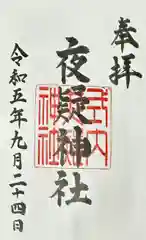 奉拝
夜疑神社
式内
夜疑
神社
令和五年九月二十四日